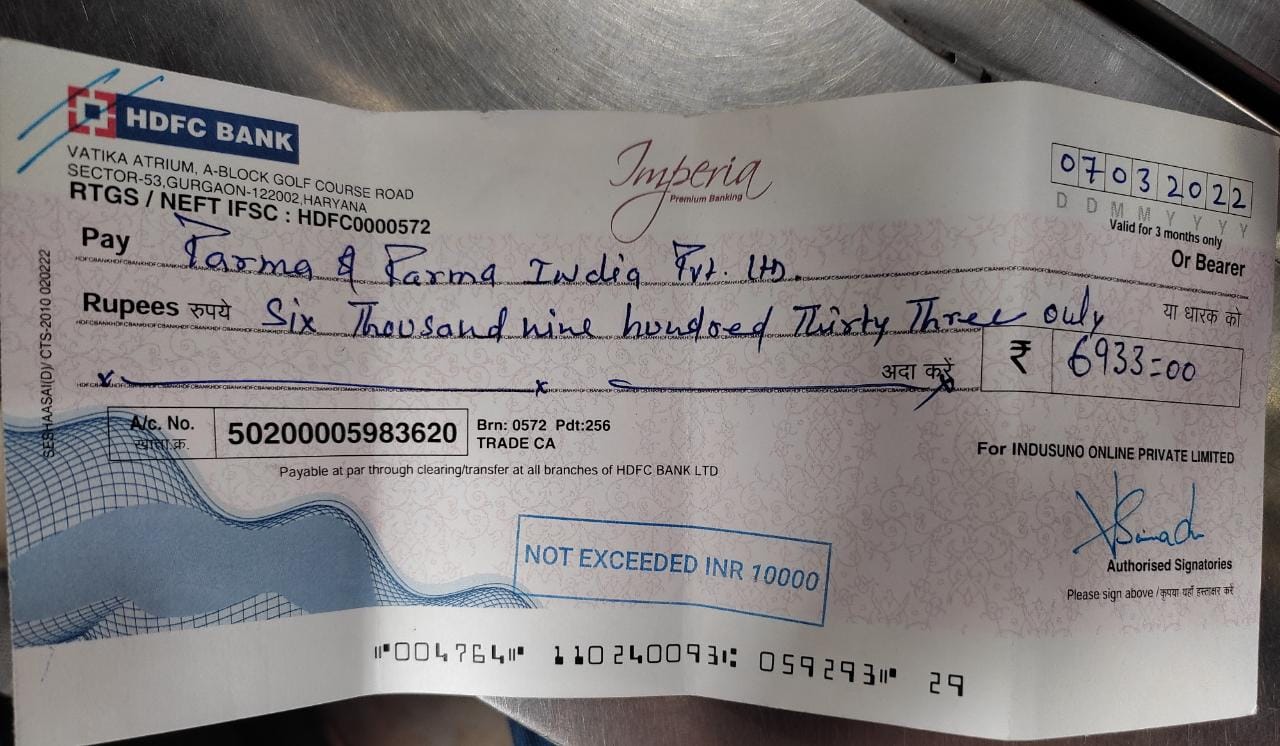 HDFC BANK
VATIKA ATRIUM, A-BLOCK GOLF COURSE ROAD
SECTOR-53,GURGAON-122002,HARYANA
RTGS / NEFT IFSC : HDFC0000572
Imperia
Premium Banking
07032022
D D M M Y Y Y Y
Valid for 3 months only
Pay Parma & Parma India Pvt. Ltd.
Or Bearer
Rupees रुपये Six Thousand nine hundred Thirty Three only या धारक को
अदा करें ₹ 6933=00
A/c. No. खाता क्र. 50200005983620 Brn: 0572 Pdt:256
TRADE CA
Payable at par through clearing/transfer at all branches of HDFC BANK LTD
For INDUSUNO ONLINE PRIVATE LIMITED
NOT EXCEEDED INR 10000
Authorised Signatories
Please sign above / कृपया यहाँ हस्ताक्षर करें
SESHAASAI(D)/ CTS-2010 020222
⑈004764⑈ 110240093⑆ 059293⑈ 29